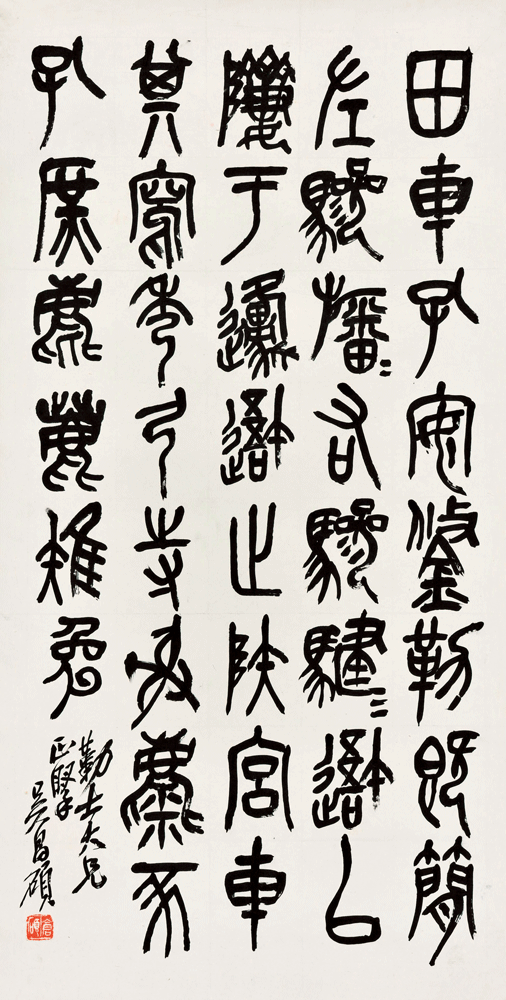 田車孔安鋚勒既簡
左驂旛=右驂騝=吾以
隮于邍吾止陝宮車
其寫秀弓寺射麋豕
孔庶麀鹿雉兔
勤士大兄
正掔
吴昌碩
倉碩